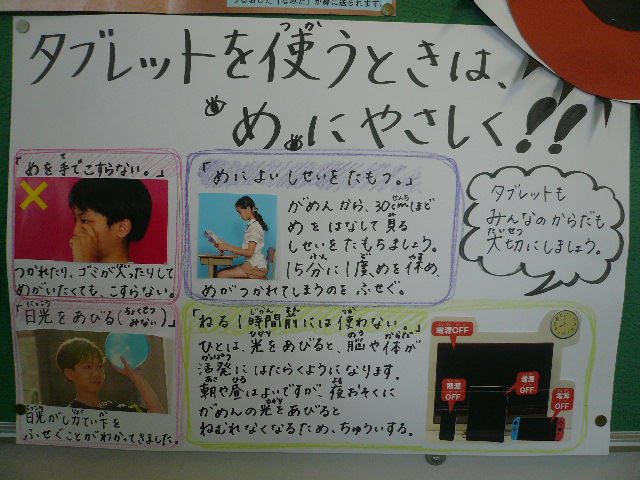 うるおした「なみだ」が鼻に送られます。
タブレットを使うときは、
めにやさしく!!
「めを手でこすらない。」
つかれたり、ゴミが入ったりして
めがいたくても、こすらない。
「めによいしせいをたもつ。」
がめんから、30cmほど
めをはなして見る
しせいをたもちましょう。
15分に1度めを休め、
めがつかれてしまうのをふせぐ。
タブレットも
みんなのからだも
大切にしましょう。
「日光をあびる(ちょくせつみない)」
日光がしカてい下を
ふせぐことがわかってきました。
「ねる1時間前には使わない。」
ひとは、光をあびると、脳や体が
活発にはたらくようになります。
朝や昼はよいですが、夜おそくに
がめんの光をあびると
ねむれなくなるため、ちゅういする。
電源OFF
電源OFF
電源OFF
電源OFF